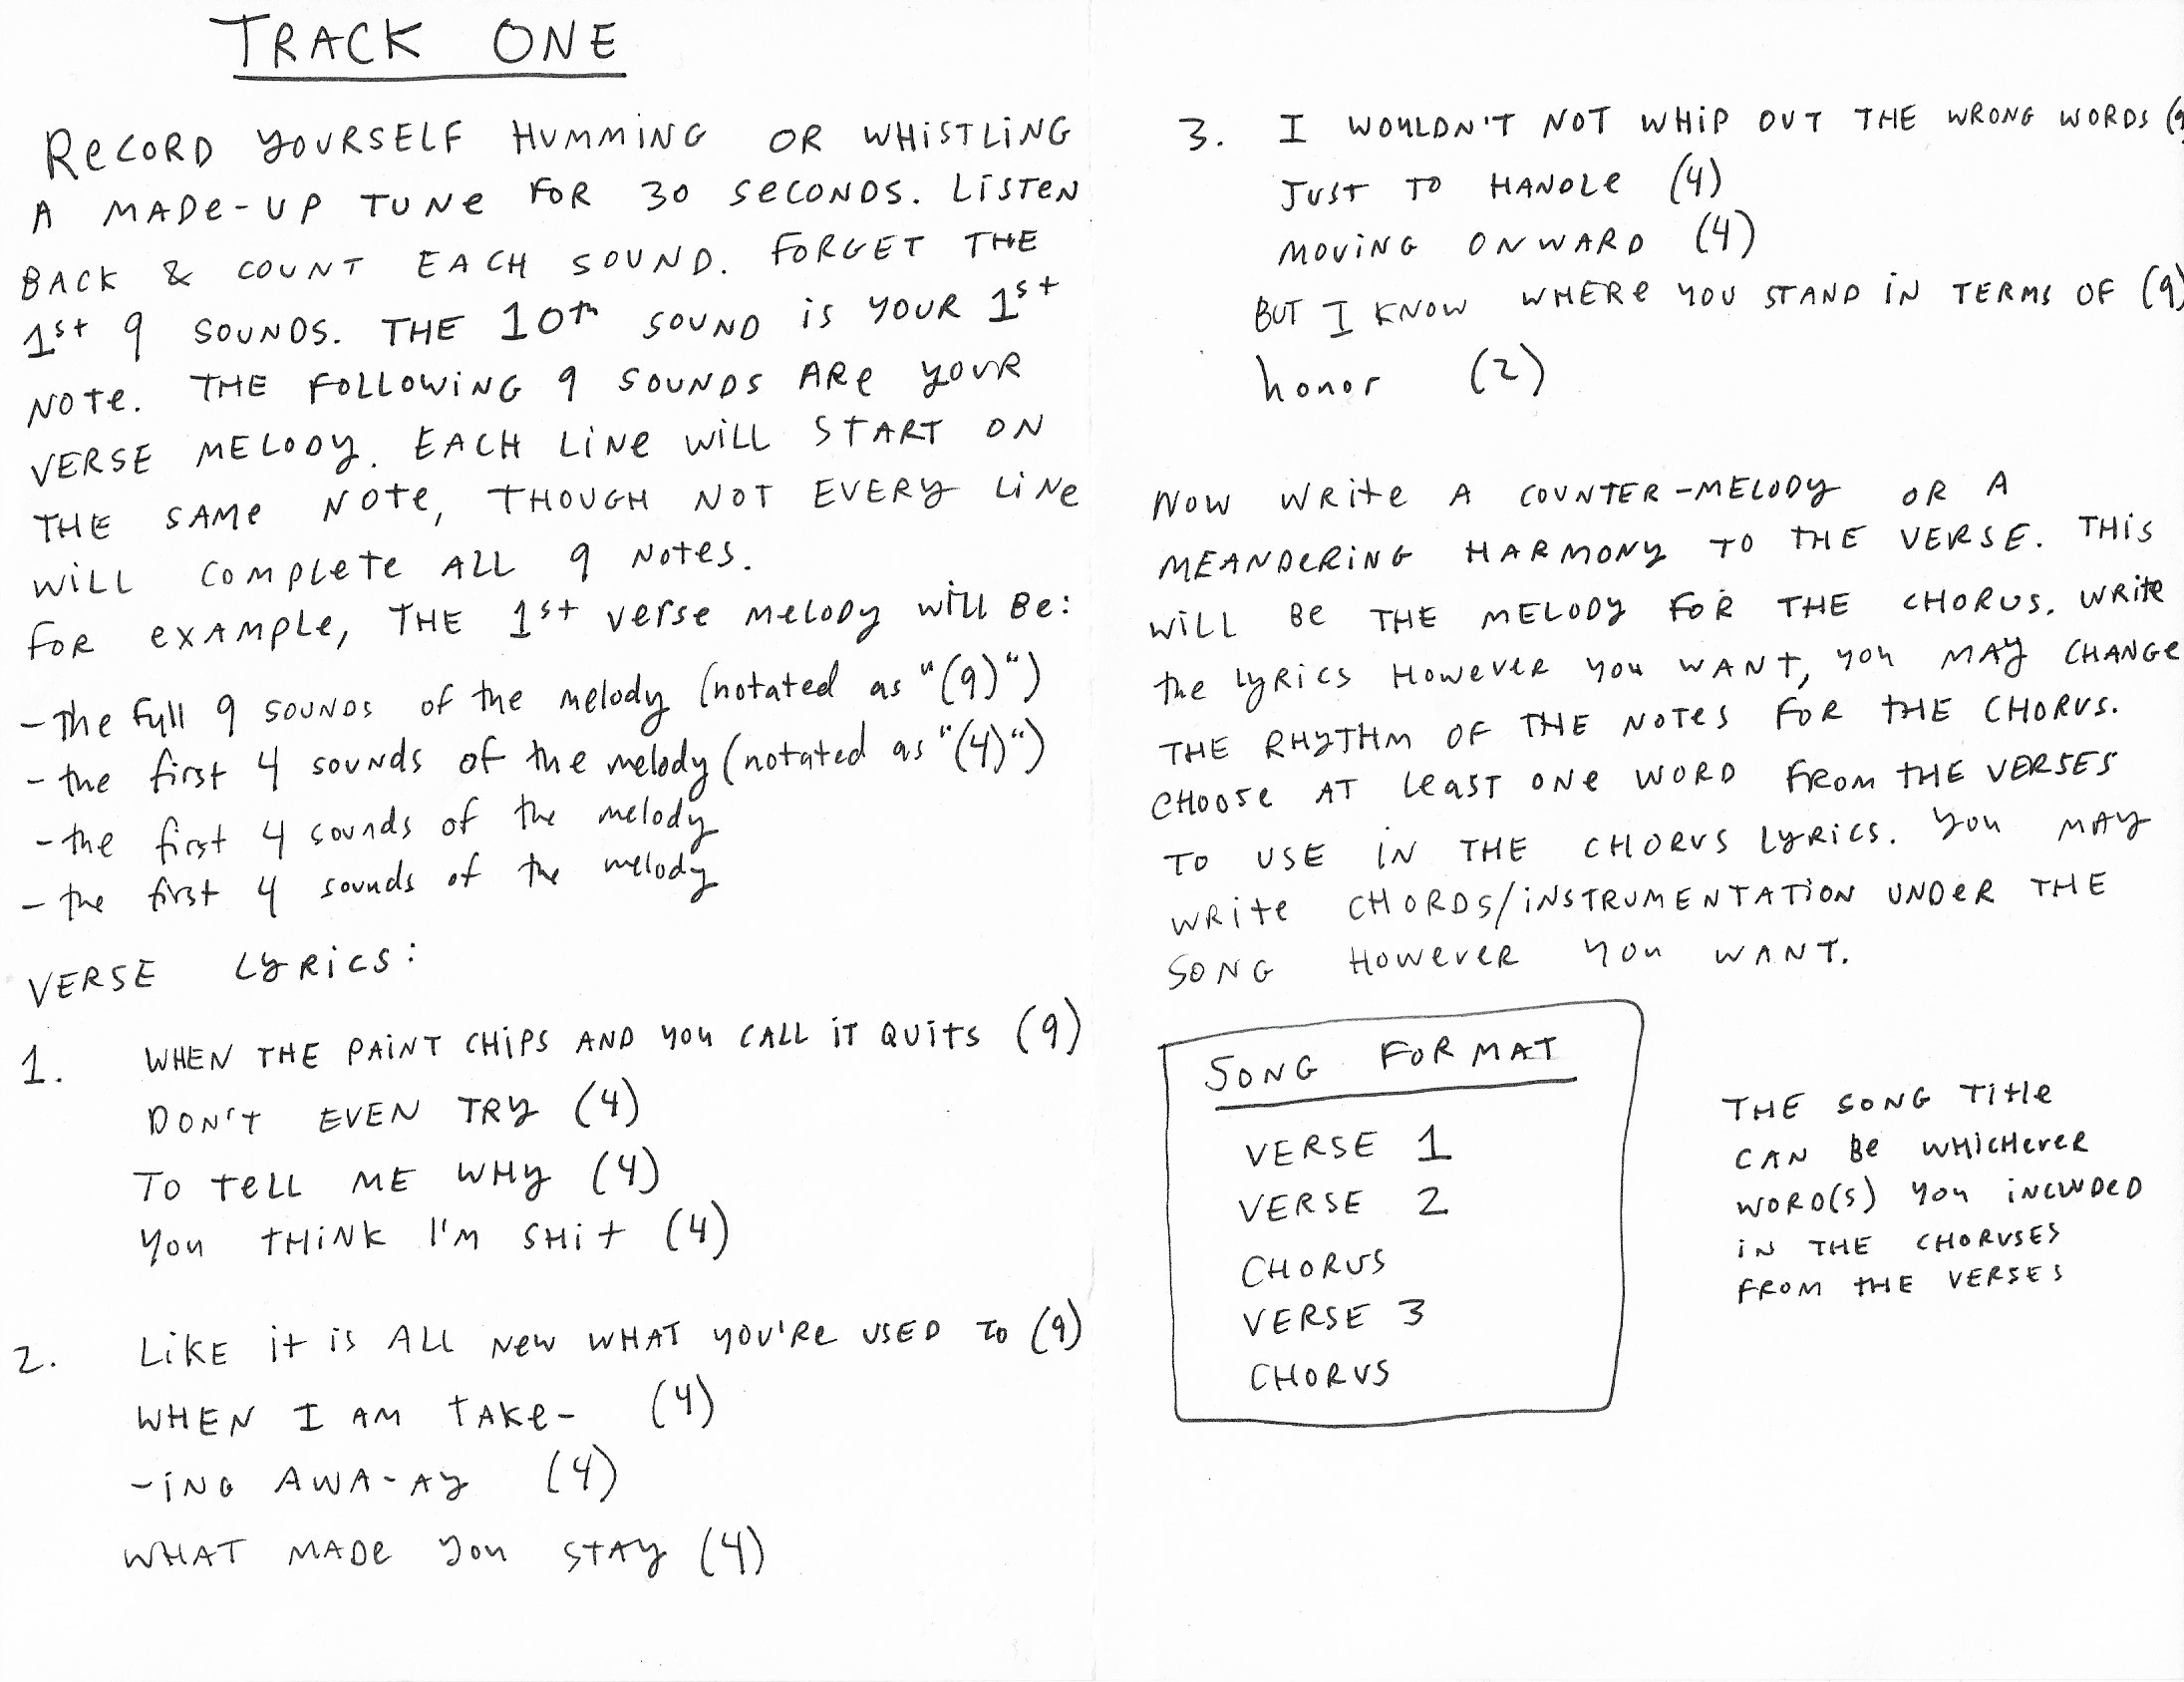 TRACK ONE
RECORD YOURSELF HUMMING OR WHISTLING
A MADE-UP TUNE FOR 30 SECONDS. LISTEN
BACK & COUNT EACH SOUND. FORGET THE
1st 9 SOUNDS. THE 10th SOUND is YOUR 1st
NOTE. THE FOLLOWING 9 SOUNDS ARE YOUR
VERSE MELODY. EACH LINE WILL START ON
THE SAME NOTE, THOUGH NOT EVERY LINE
WILL COMPLETE ALL 9 NOTES.
FOR EXAMPLE, THE 1st VERSE MELODY WILL BE:
- the full 9 SOUNDS of the melody (notated as "(9)")
- the first 4 SOUNDS of the melody (notated as "(4)")
- the first 4 sounds of the melody
- the first 4 sounds of the melody
VERSE LYRICS:
1. WHEN THE PAINT CHIPS AND YOU CALL IT QUITS (9)
DON'T EVEN TRY (4)
TO TELL ME WHY (4)
YOU THINK I'M SHIT (4)
2. LIKE IT IS ALL NEW WHAT YOU'RE USED TO (9)
WHEN I AM TAKE- (4)
-ING AWA-AY (4)
WHAT MADE YOU STAY (4)
3. I WOULDN'T NOT WHIP OUT THE WRONG WORDS (9
JUST TO HANDLE (4)
MOVING ONWARD (4)
BUT I KNOW WHERE YOU STAND IN TERMS OF (9)
honor (2)
NOW WRITE A COUNTER-MELODY OR A
MEANDERING HARMONY TO THE VERSE. THIS
WILL BE THE MELODY FOR THE CHORUS. WRITE
the LYRICS HOWEVER YOU WANT, YOU MAY CHANGE
THE RHYTHM OF THE NOTES FOR THE CHORUS.
CHOOSE AT LEAST ONE WORD FROM THE VERSES
TO USE IN THE CHORUS LYRICS. YOU MAY
WRITE CHORDS/INSTRUMENTATION UNDER THE
SONG HOWEVER YOU WANT.
SONG FORMAT
VERSE 1
VERSE 2
CHORUS
VERSE 3
CHORUS
THE SONG TITLE
CAN BE WHICHEVER
WORD(S) YOU INCLUDED
IN THE CHORUSES
FROM THE VERSES